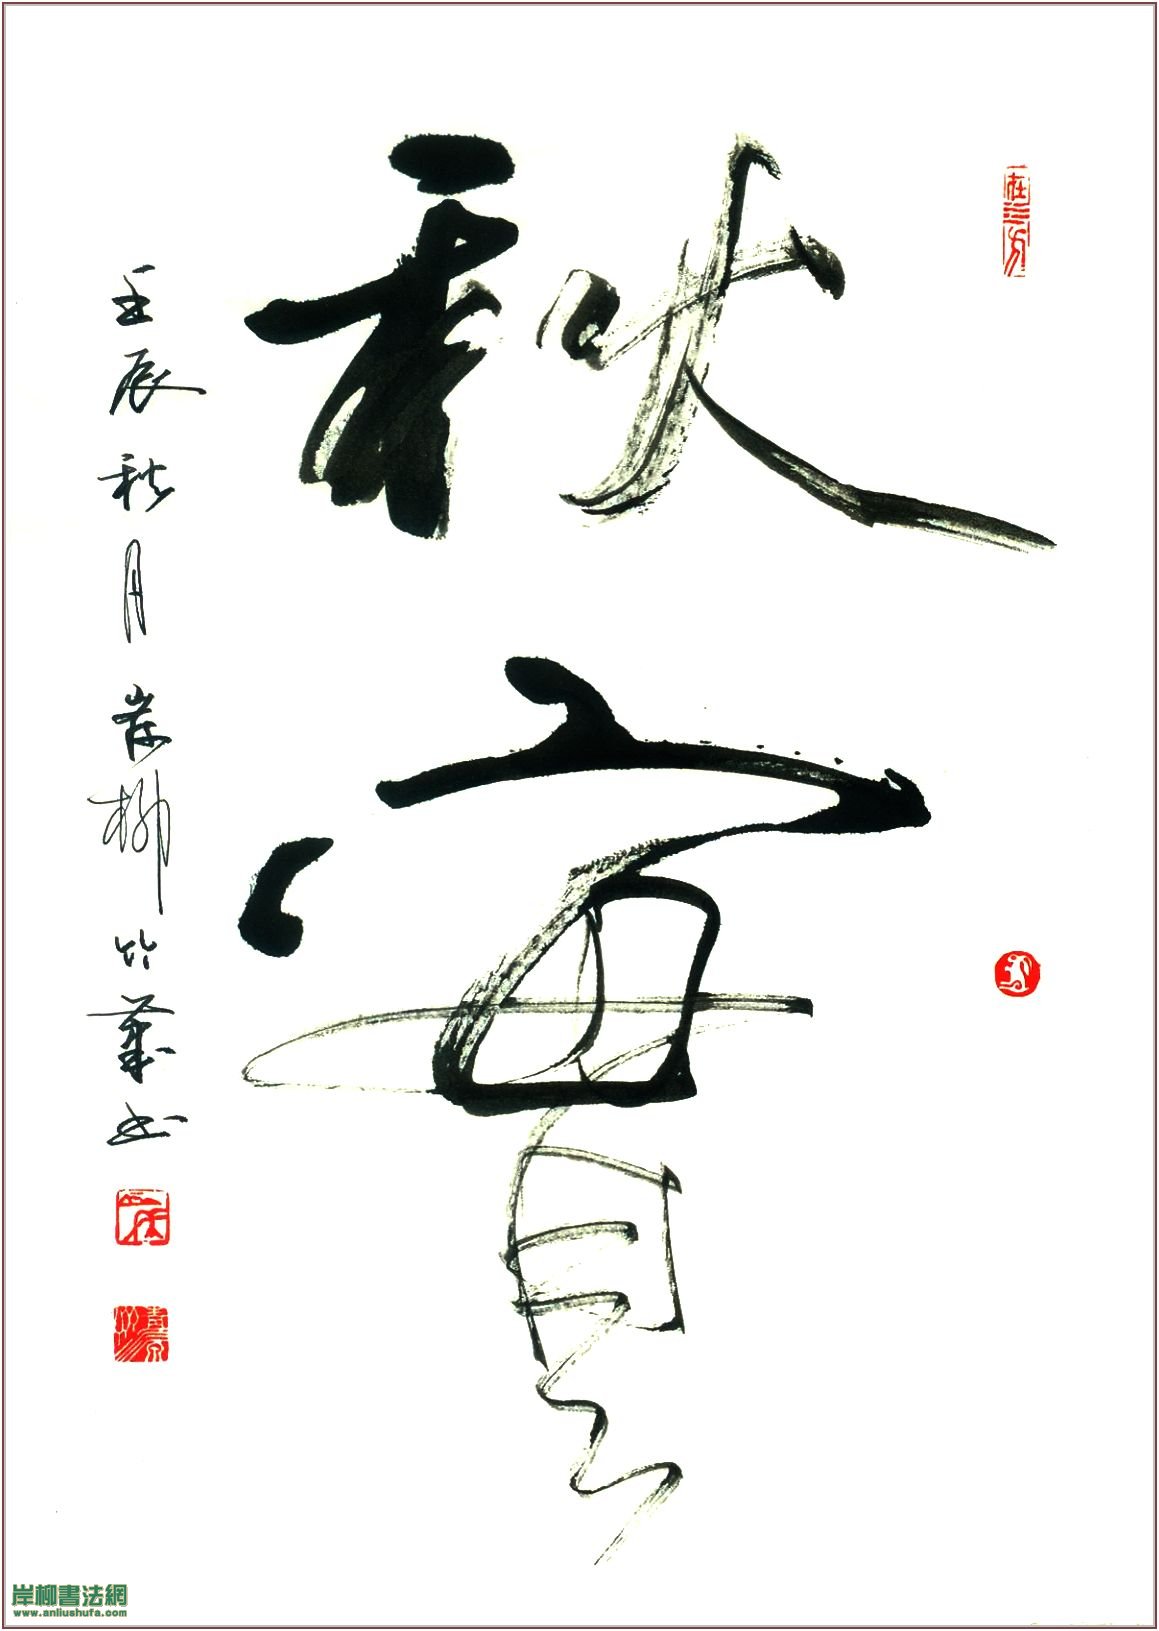 秋實
壬辰秋月岸柳竹叢書
岸柳書法網
www.anliushufa.com